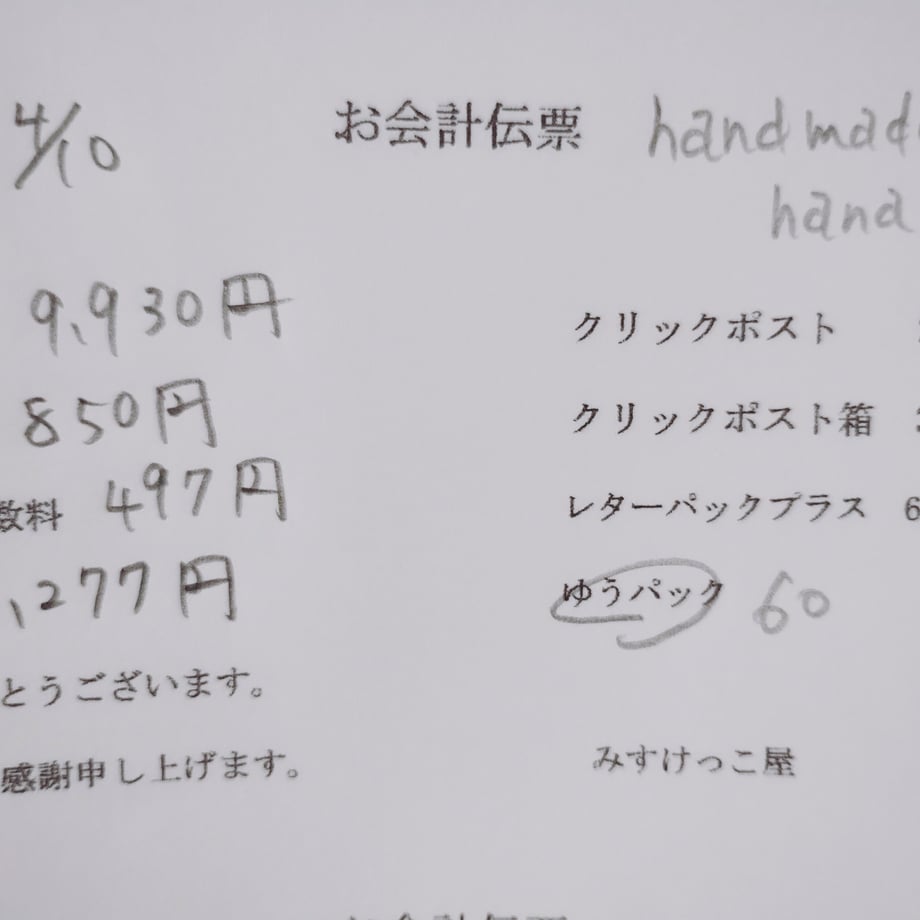 4/10
お会計伝票
handmad
hana
9,930円
クリックポスト
850円
クリックポスト箱
数料 497円
レターパックプラス 6
,277円
ゆうパック 60
とうございます。
感謝申し上げます。
みすけっこ屋